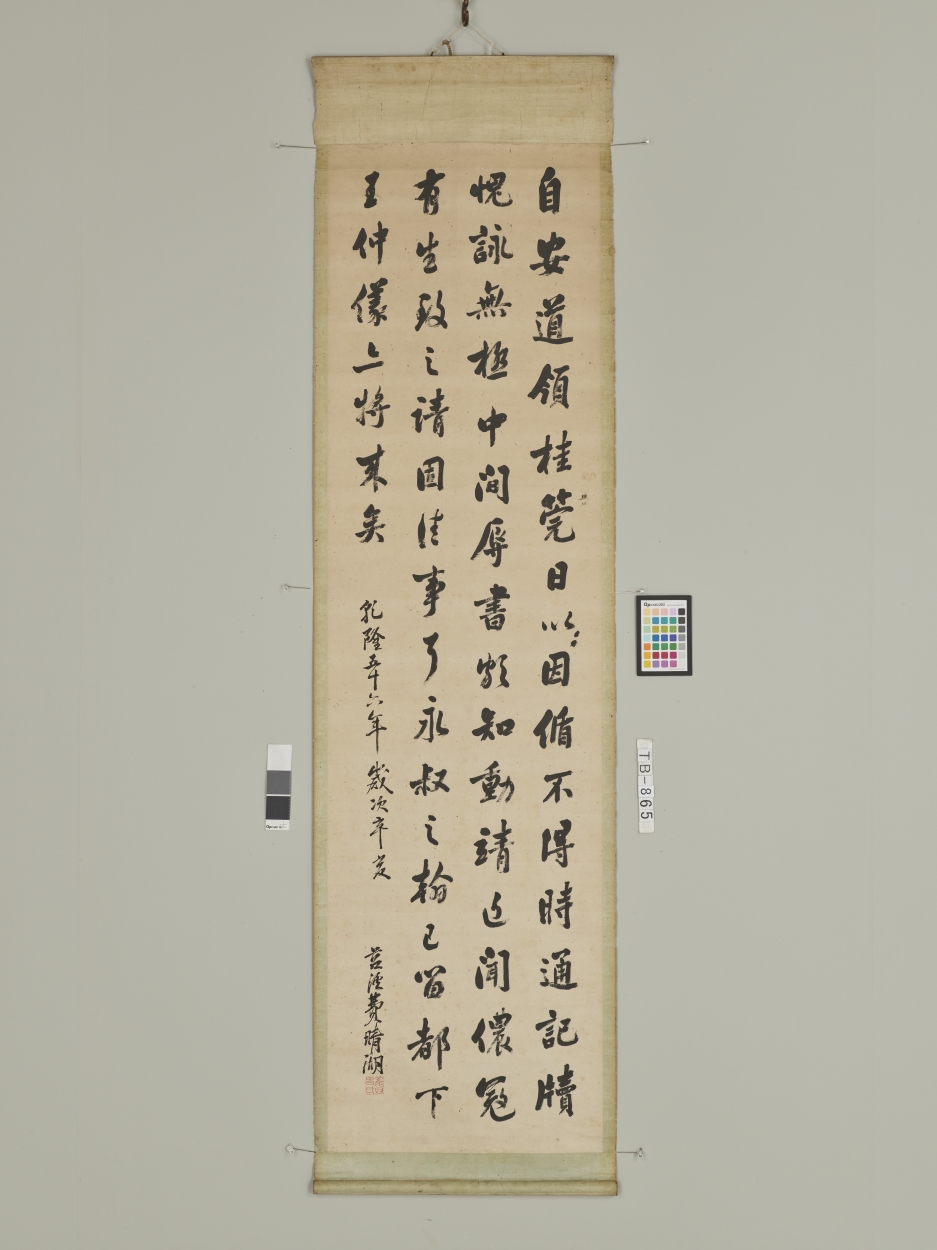 自安道領桂莞日以因循不得時通記牘
愧詠無極中間辱書頗知動靖近聞儂寇
有生致之請固佳事了永叔之翰已留都下
王仲儀亦將來矣
乾隆五十六年 歲次辛亥
苕溪費晴湖
TB-865